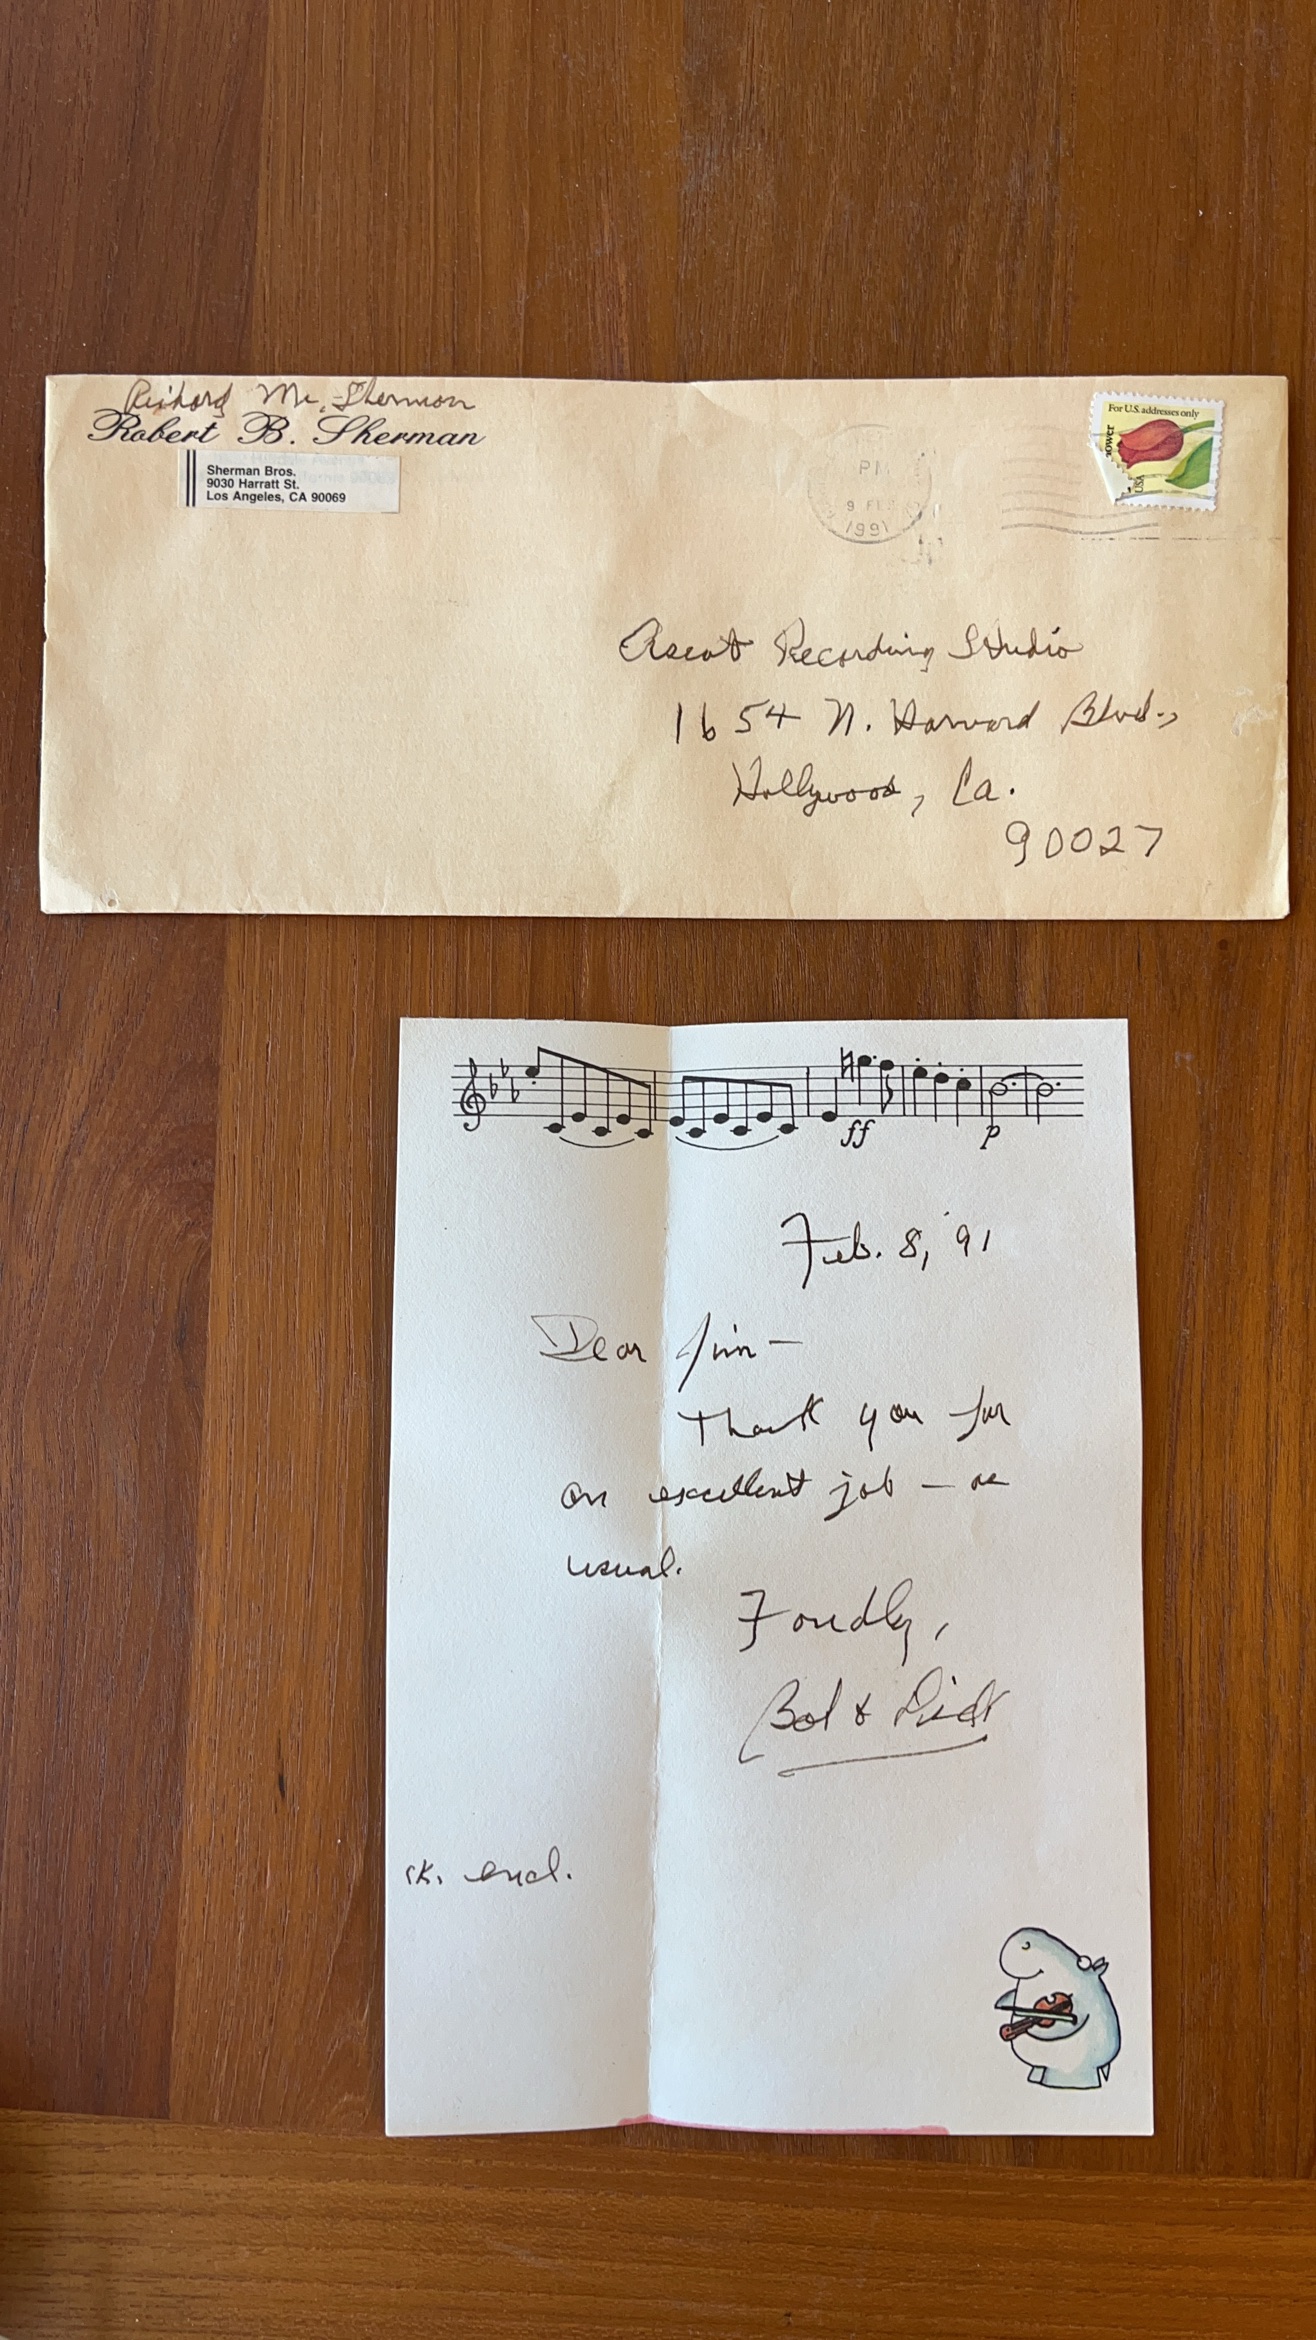 Richard M. Sherman
Robert B. Sherman
Sherman Bros.
9030 Harratt St.
Los Angeles, CA 90069
For U.S. addresses only
USA
PM
9 FEB
1991
Ascot Recording Studio
1654 N. Harvard Blvd.,
Hollywood, Ca.
90027
ff
p
Feb. 8, '91
Dear Jim—
Thank you for
an excellent job — as
usual.
Fondly,
Bob & Dick
ck. encl.